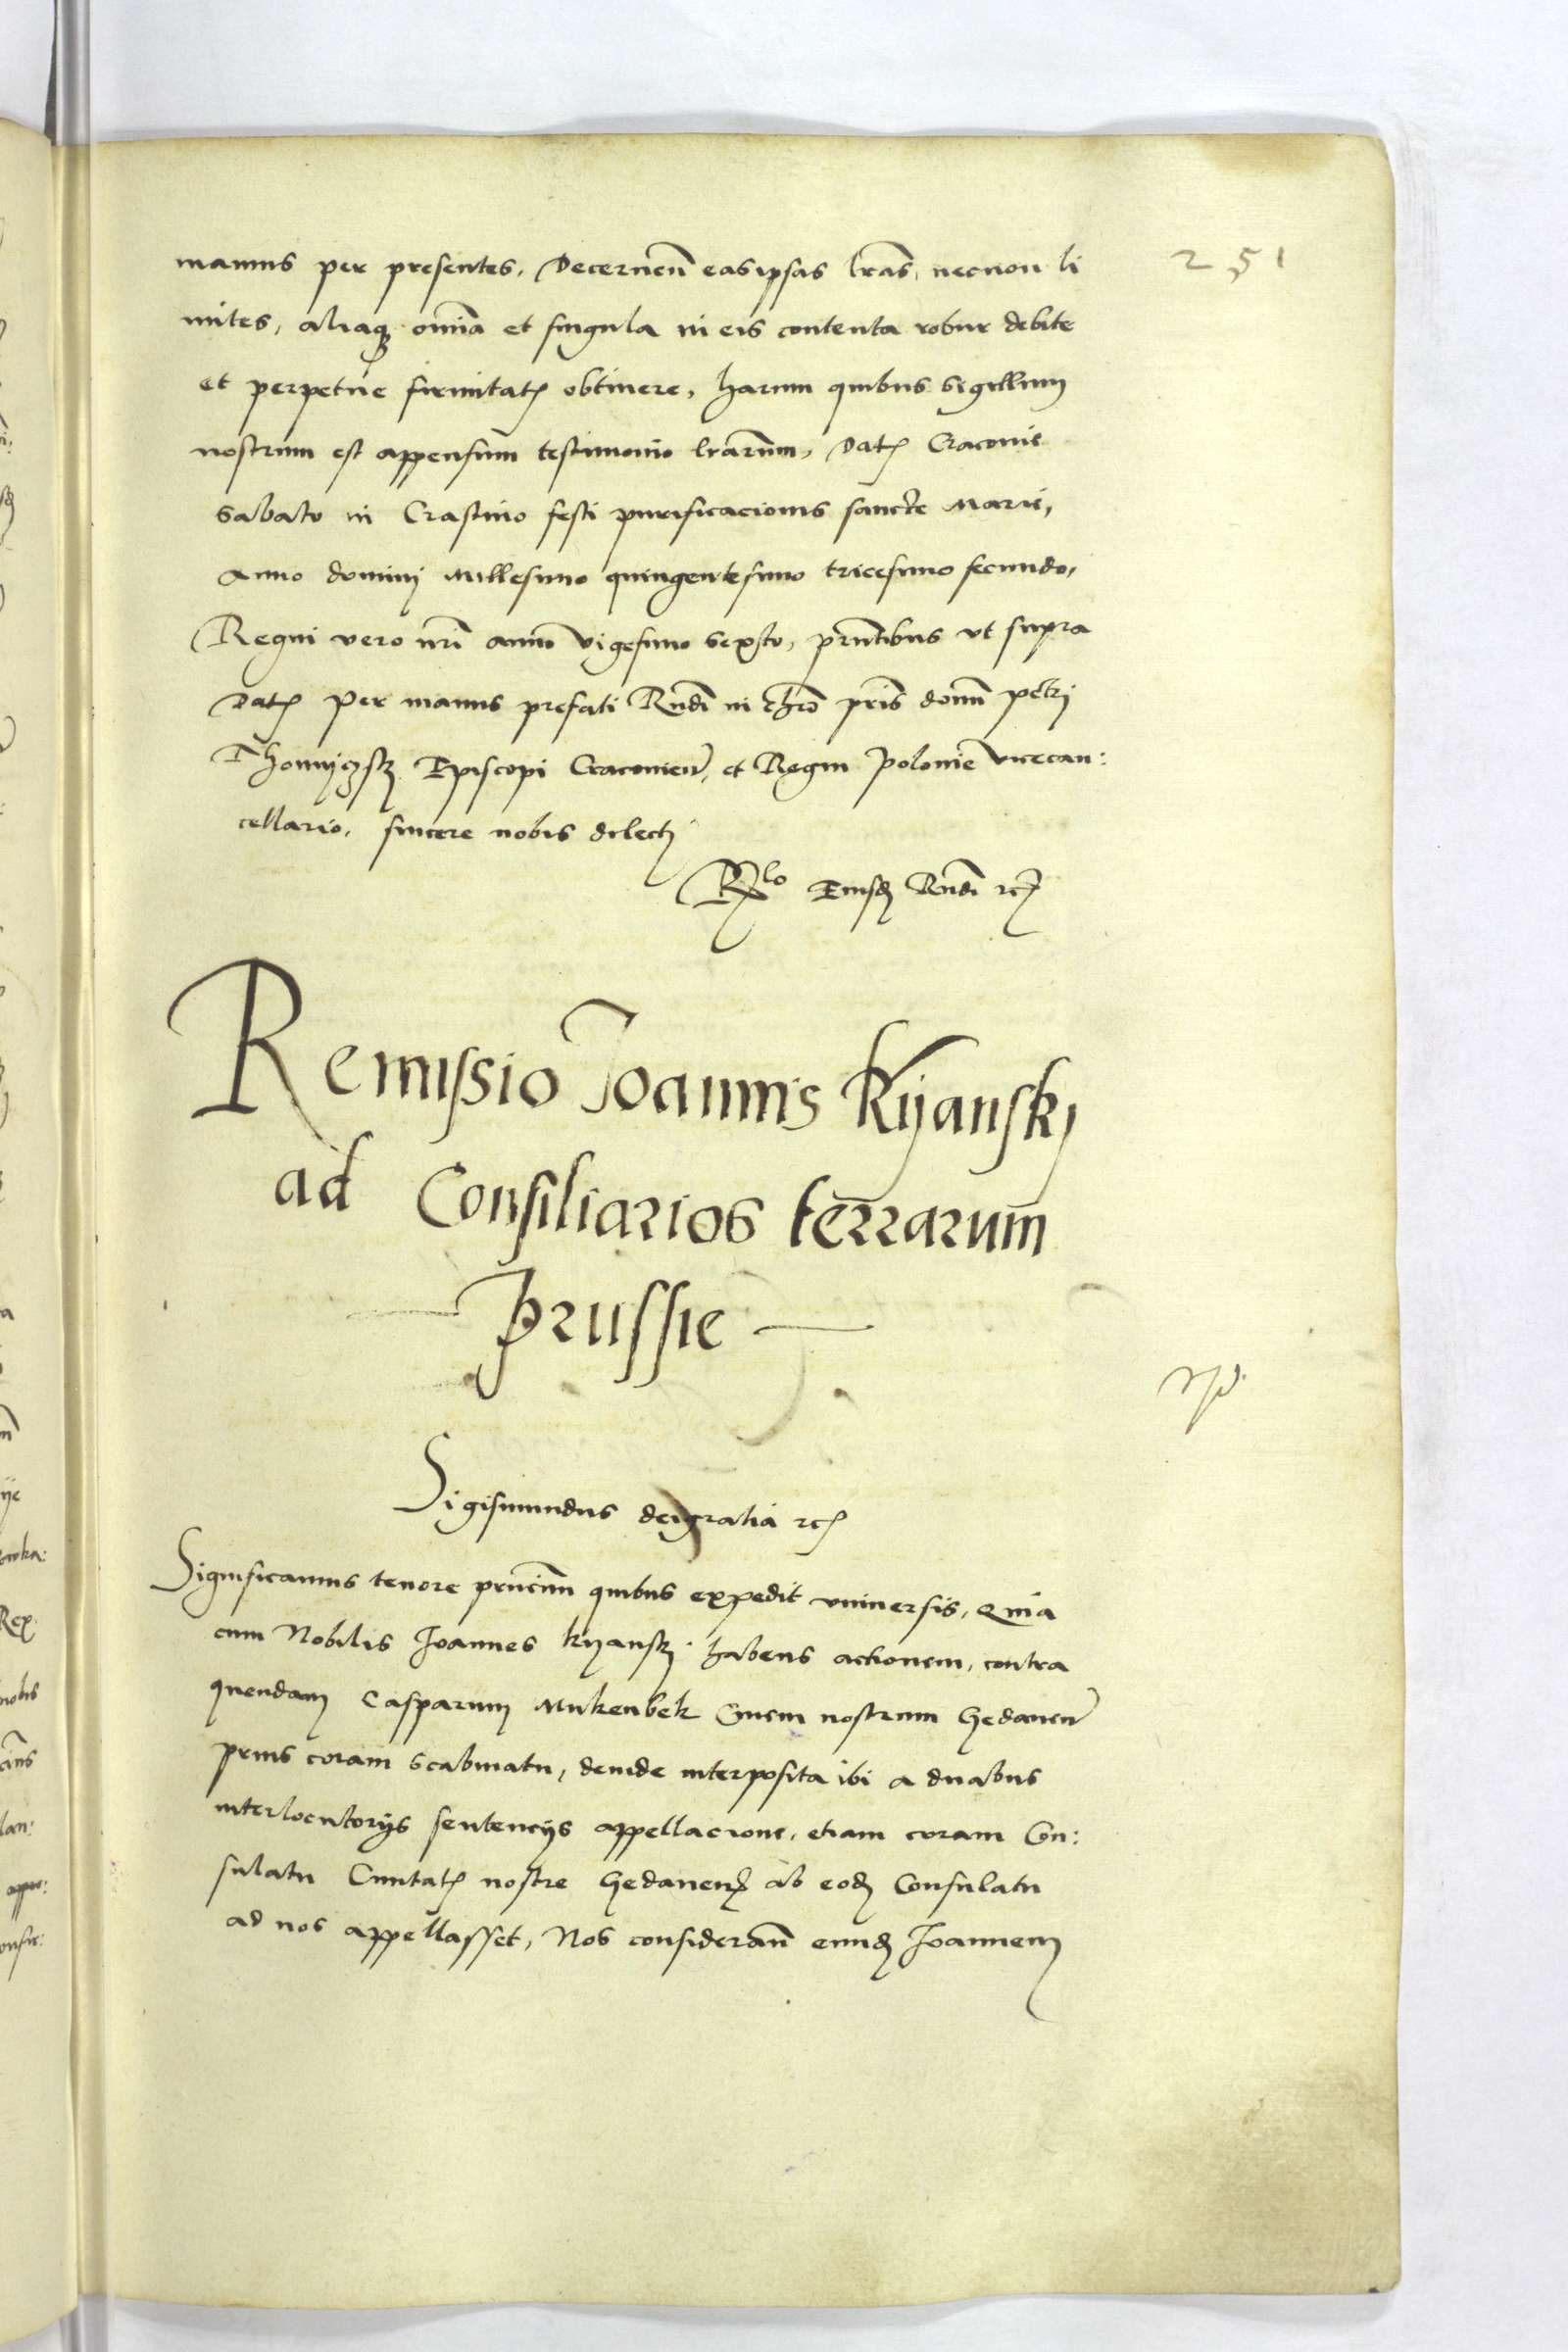 251
manus per presentes, Decernen̄ eas ipsas lr̄as, necnon li
mites, aliaqʒ om̄ia et singula in eis contenta robur debite
et perpetue firmitatꝭ obtinere, harum quibus sigillum
nostrum est appensum testimonio lr̄arum, Datꝭ Cracovie
Sabato in Crastino festi purificacionis sancte Marie,
Anno dominj Millesimo quingentesimo tricesimo secundo,
Regni vero nr̄i anno Vigesimo sexto, pn̄tibus vt supra
Datꝭ Per manus prefati Rn̄di in chr̄o pr̄is domn̄ petrj
Thomiczskj Episcopi Cracovien̄, et Regni Polonie Vicecan:
cellario, sincere nobis dilectj
Rlo Eiusdꝫ Rn̄di ⁊cꝭ
Remissio Joannis Kyanskj
ad Consiliarios terrarum
Prussie
Sigismundus dei gratia ⁊cꝭ
Significamus tenore pn̄cium quibus expedit vniuersis, Quia
cum Nobilis Joannes kyanskj habens actionem, contra
quendam Casparum Mukenbek Ciuem nostrum Gedanen̄
prius coram scabinatu, deinde interposita ibi a duabus
interlocutorijs sentencijs appellacione, etiam coram Con:
sulatu Ciuitatꝭ nostre Gedanenꝭ ab eodꝫ Consulatu
ad nos appellasset, Nos consideran̄ eundꝫ Joannem